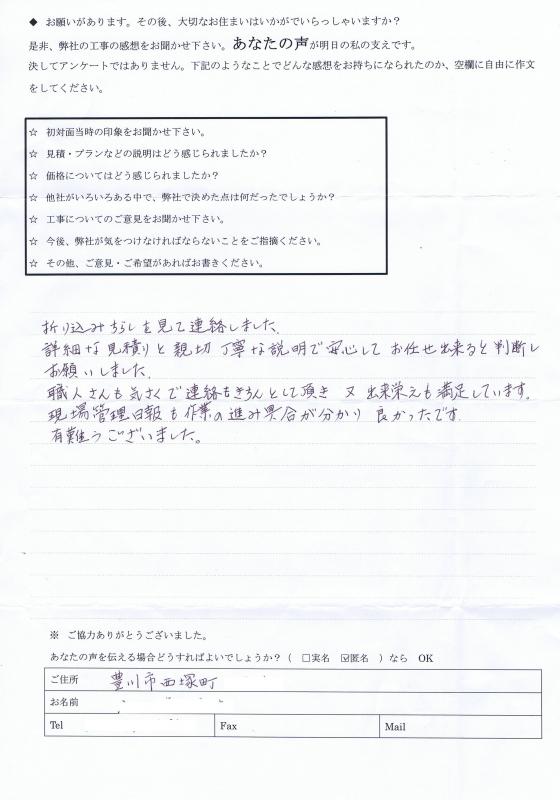 ◆ お願いがあります。その後、大切なお住まいはいかがでいらっしゃいますか？
是非、弊社の工事の感想をお聞かせ下さい。あなたの声が明日の私の支えです。
決してアンケートではありません。下記のようなことでどんな感想をお持ちになられたのか、空欄に自由に作文
をしてください。
☆ 初対面当時の印象をお聞かせ下さい。
☆ 見積・プランなどの説明はどう感じられましたか？
☆ 価格についてはどう感じられましたか？
☆ 他社がいろいろある中で、弊社で決めた点は何だったでしょうか？
☆ 工事についてのご意見をお聞かせ下さい。
☆ 今後、弊社が気をつけなければならないことをご指摘ください。
☆ その他、ご意見・ご希望があればお書きください。
折り込みちらしを見て連絡しました。
詳細な見積りと親切丁寧な説明で安心してお任せ出来ると判断し
お願いしました。
職人さんも気さくで連絡もきちんとして頂き 又 出来栄えも満足しています。
現場管理日報も作業の進み具合が分かり 良かったです。
有難うございました。
※ ご協力ありがとうございました。
あなたの声を伝える場合どうすればよいでしょうか？（ □実名 ☑匿名 ）なら OK
ご住所 豊川市西塚町
お名前
Tel Fax Mail